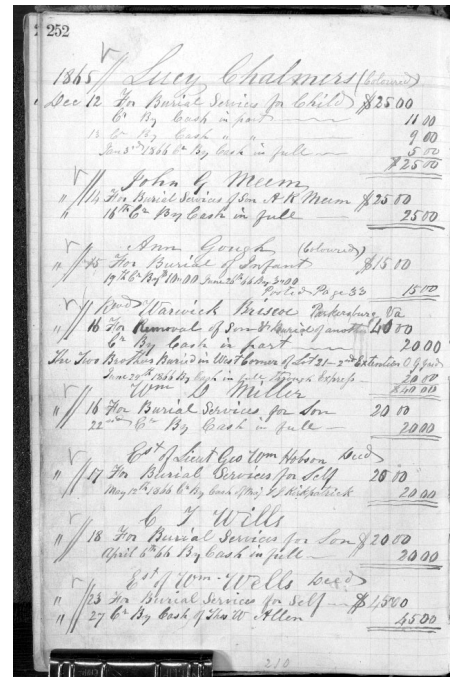 252
1865 Lucy Chalmers (Coloured)
Dec 12 For Burial Services for Child $25 00
Cr By Cash in part 11 00
13 Cr By Cash " " 9 00
Jan 3rd 1866 Cr By Cash in full 5 00
$25 00
John G Meem
" 14 For Burial Services of Son A K Meem $25 00
" 16th Cr By Cash in full 25 00
Ann Gough (Coloured)
" 15 For Burial of Infant $15 00
Posted Page 33 15 00
Warwick Briscoe Parkersburg Va
" 16 For Removal of Son & Burial of another 40 00
Cr By Cash in part 20 00
The Two Brothers Buried in West Corner of Lot 21 - 2nd Extention
1866 By Cash in full through Express 20 00
$40 00
Wm D Miller
" 16 For Burial Services for Son 20 00
22nd Cr By Cash in full 20 00
Est of Lieut Geo Wm Hobson Decd
" 17 For Burial Services for Self 20 00
May 12th 1866 Cr By Cash of Maj Kirkpatrick 20 00
C T Wills
" 18 For Burial Services for Son $20 00
April 66 By Cash in full 20 00
Est of Wm Wells Decd
" 23 For Burial Services for Self $45 00
" 27 Cr By Cash of Thos W Allen 45 00
210